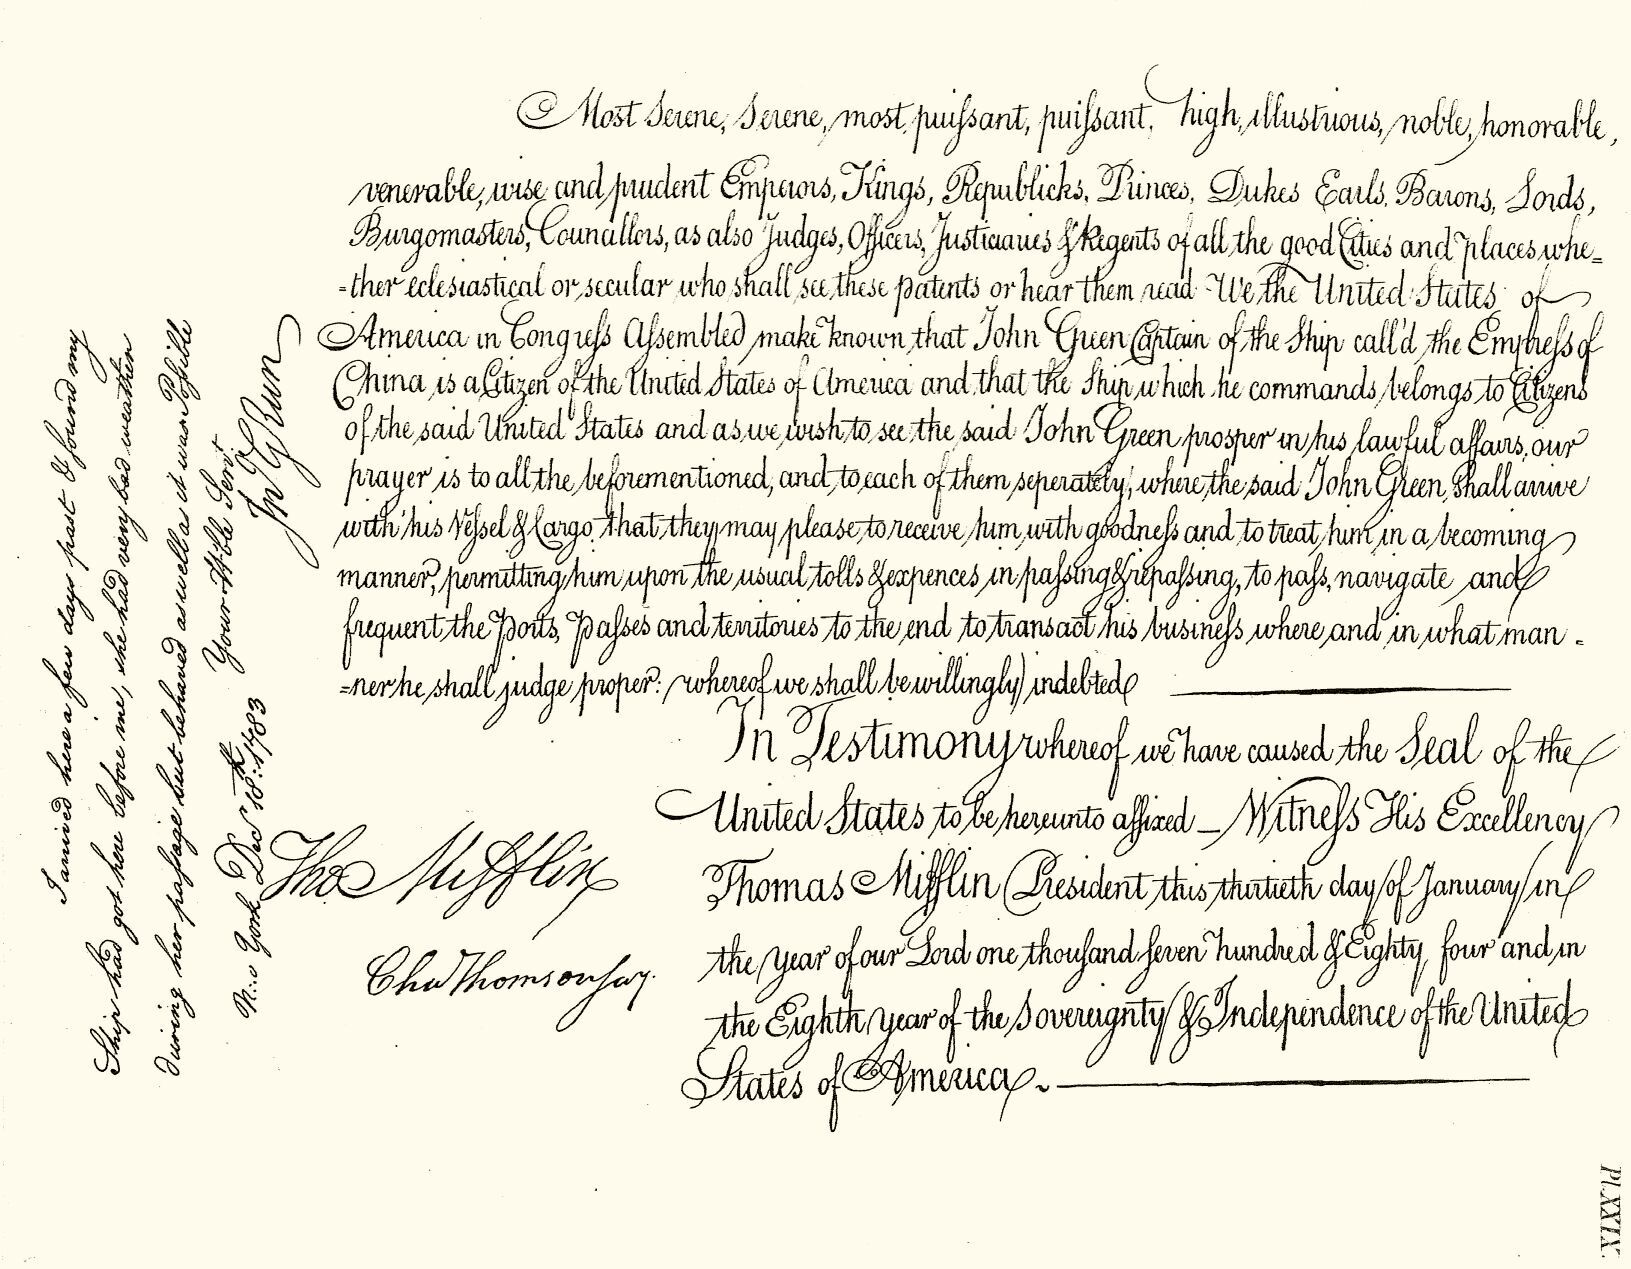 Most Serene, Serene, most, puissant, puissant, high, illustrious, noble, honorable,
venerable, wise and prudent Emperors, Kings, Republicks, Princes, Dukes Earls, Barons, Lords,
Burgomasters, Councillors, as also Judges, Officers, Justiciaries & Regents of all the good Cities and places whe=
=ther eclesiastical or secular who shall see these patents or hear them read We the United States of
America in Congress Assembled make known that John Green Captain of the Ship call'd the Empress of
China is a Citizen of the United States of America and that the Ship which he commands belongs to Citizens
of the said United States and as we wish to see the said John Green prosper in his lawful affairs, our
prayer is to all the beforementioned, and to each of them seperately, where the said John Green, Shall arrive
with his Vessel & Cargo, that they may please to receive him with goodness and to treat him in a becoming
manner, permitting him upon the usual tolls & expences in passing & repassing, to pass, navigate and
frequent the Ports, Passes and territories to the end to transact his business where and in what man=
=ner he shall judge proper: whereof we shall be willingly indebted
In Testimony whereof we have caused the Seal of the
United States to be hereunto affixed – Witness His Excellency
Thomas Mifflin President this thirtieth day of January in
the year of our Lord one thousand seven hundred & Eighty, four and in
the Eighth year of the Sovereignty & Independence of the United
States of America.
Tho Mifflin
Cha Thomson Secy.
I arrived here a few days past & found my
Ship had got here before me, she had very bad weather
during her passage but behaved as well as it was Possible
Your Hble Servt
Jn Green
N.. York Decr 18th: 1783
Pl.XXIX.